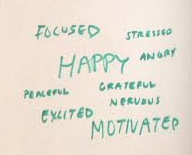 FOCUSED
STRESSED
HAPPY
ANGRY
PEACEFUL
GRATEFUL
NERVOUS
EXCITED
MOTIVATED